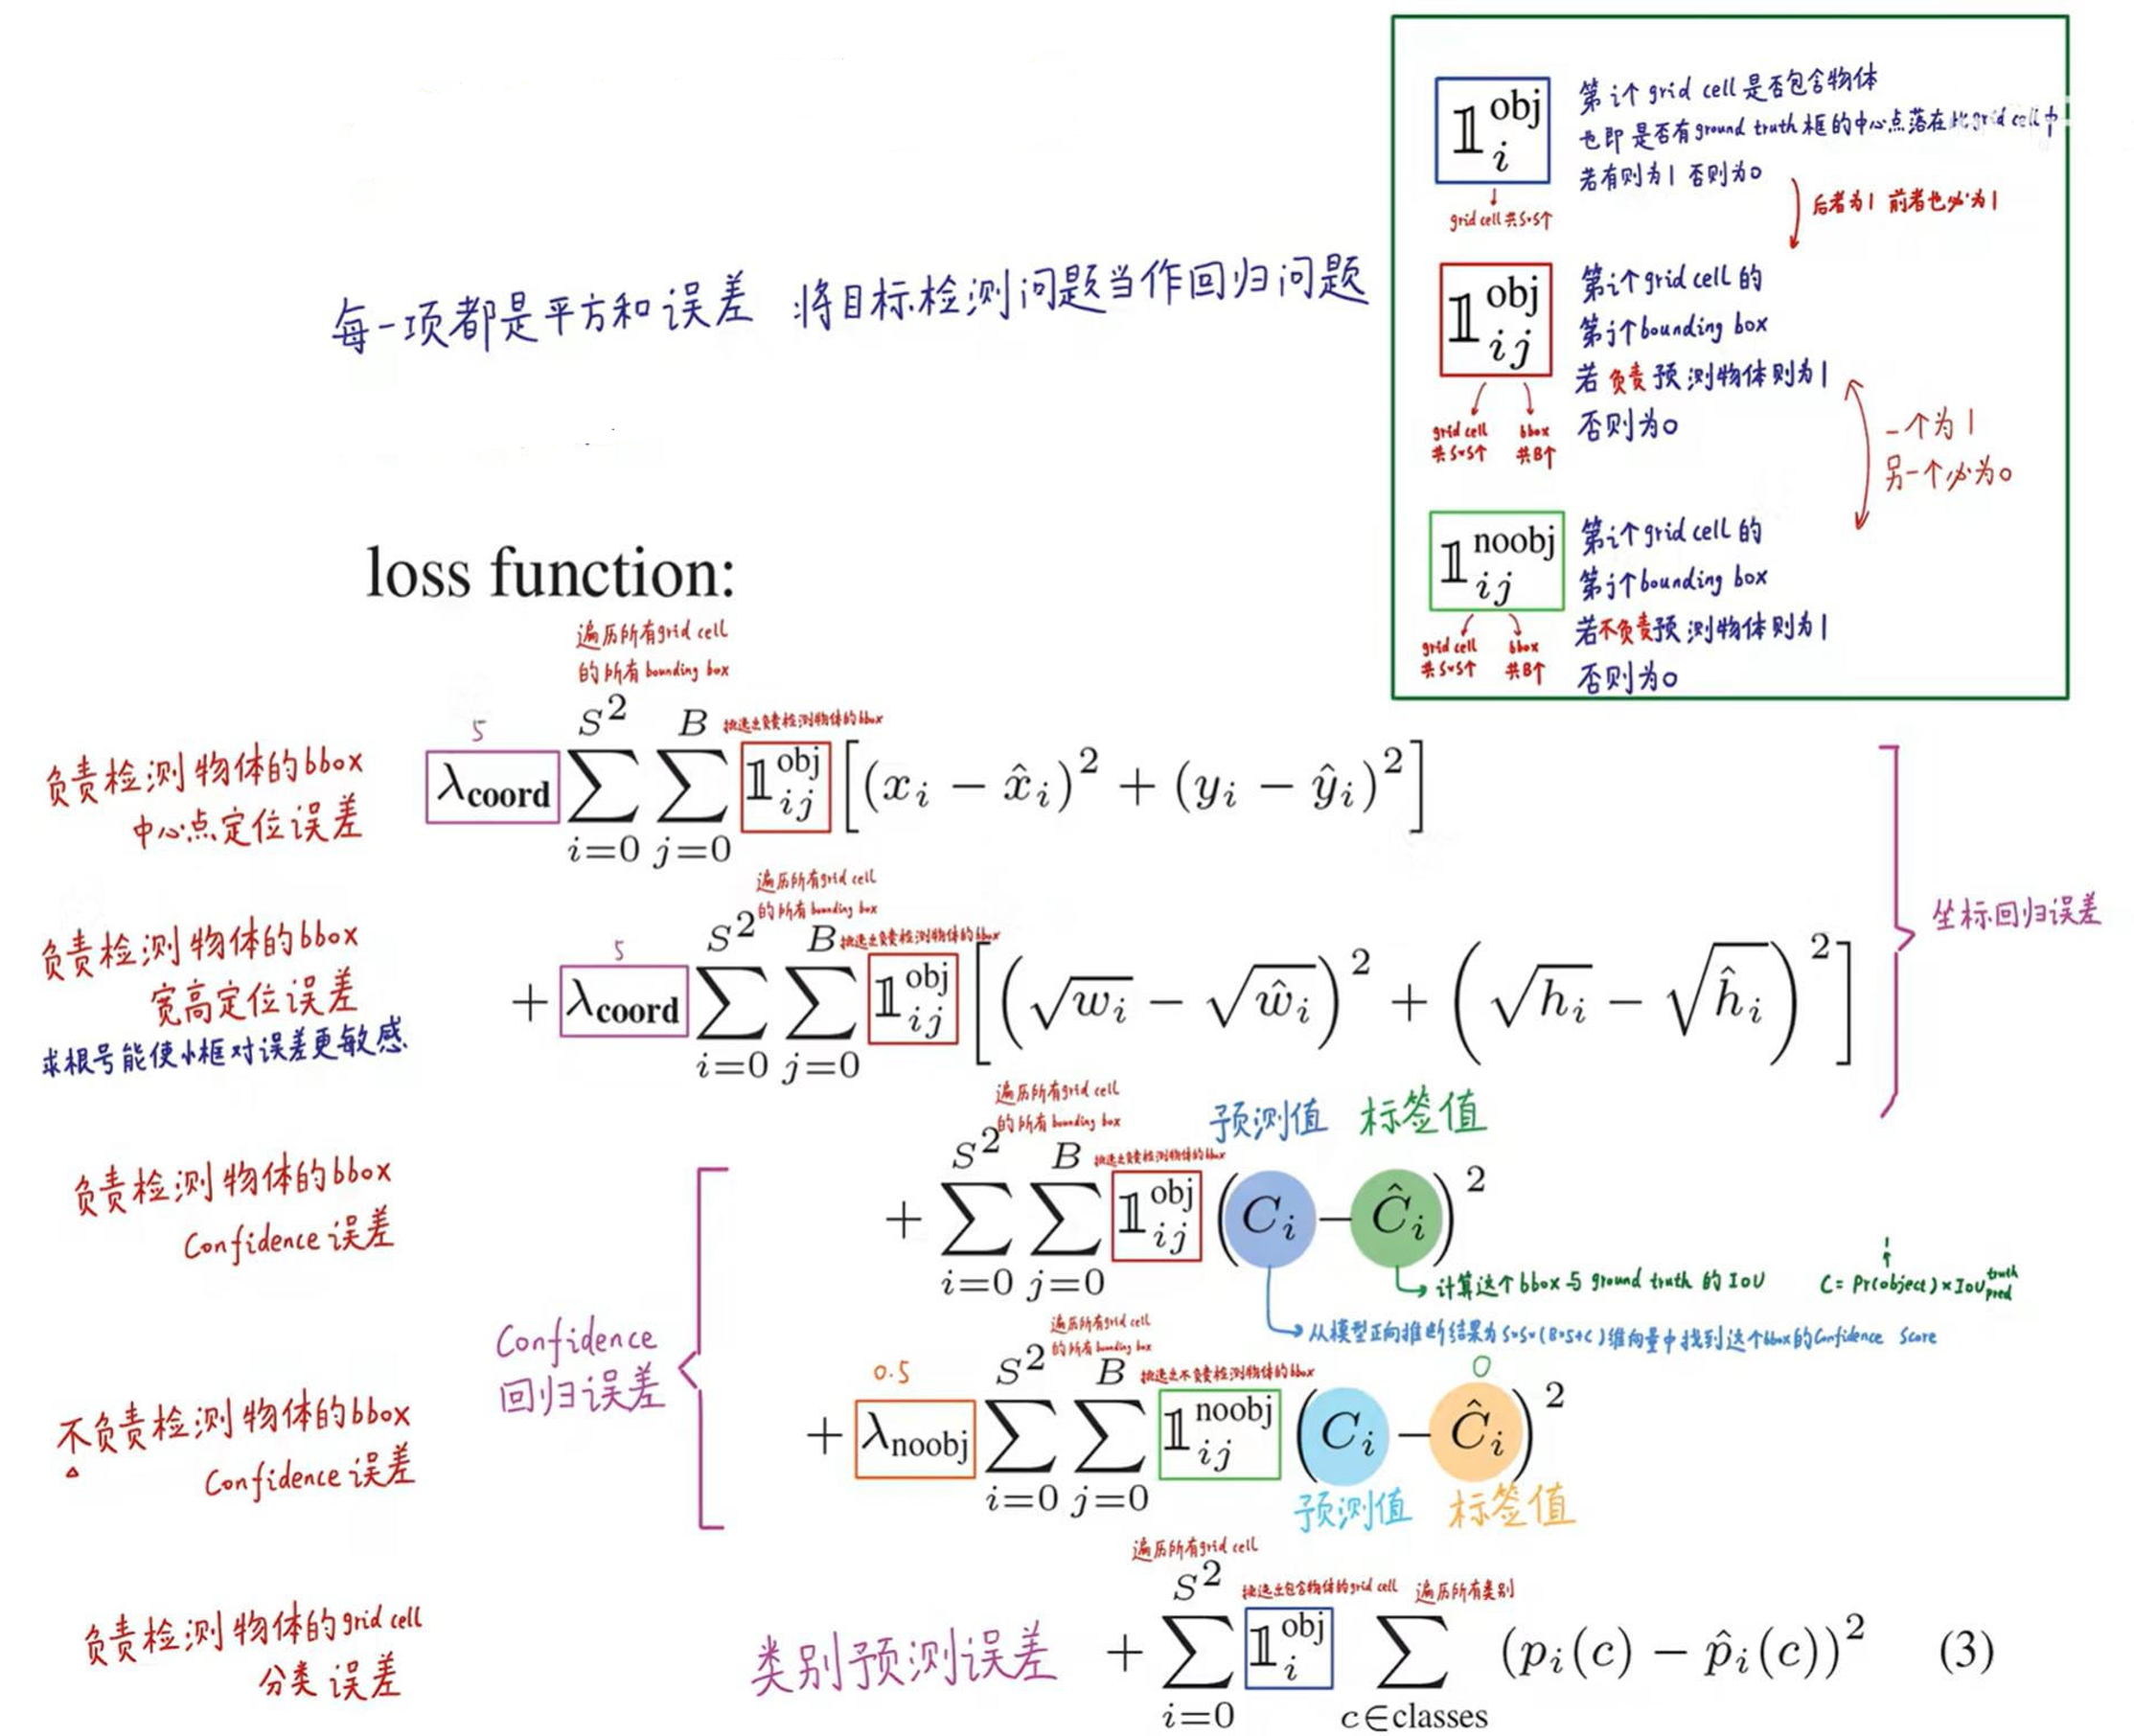 每一项都是平方和误差 将目标检测问题当作回归问题
𝟙_i^obj
grid cell 共S*S个
第i个grid cell是否包含物体
也即是否有ground truth框的中心点落在此grid cell中
若有则为1 否则为0
后者为1 前者也必为1
𝟙_ij^obj
grid cell 共S*S个
bbox 共B个
第i个grid cell的
第j个bounding box
若负责预测物体则为1
否则为0
一个为1
另一个必为0
𝟙_ij^noobj
grid cell 共S*S个
bbox 共B个
第i个grid cell的
第j个bounding box
若不负责预测物体则为1
否则为0
loss function:
遍历所有grid cell
的所有bounding box
挑选出负责检测物体的bbox
5
负责检测物体的bbox
中心点定位误差
λ_coord ∑_{i=0}^{S^2} ∑_{j=0}^{B} 𝟙_ij^obj [(x_i − x̂_i)^2 + (y_i − ŷ_i)^2]
遍历所有grid cell
的所有bounding box
挑选出负责检测物体的bbox
5
负责检测物体的bbox
宽高定位误差
求根号能使小框对误差更敏感
+ λ_coord ∑_{i=0}^{S^2} ∑_{j=0}^{B} 𝟙_ij^obj [(√w_i − √ŵ_i)^2 + (√h_i − √ĥ_i)^2]
坐标回归误差
遍历所有grid cell
的所有bounding box
挑选出负责检测物体的bbox
预测值 标签值
负责检测物体的bbox
Confidence 误差
+ ∑_{i=0}^{S^2} ∑_{j=0}^{B} 𝟙_ij^obj (C_i − Ĉ_i)^2
计算这个bbox与ground truth的IoU
1
C = Pr(object) × IoU_pred^truth
从模型正向推断结果为S*S*(B*5+C)维向量中找到这个bbox的Confidence Score
Confidence
回归误差
遍历所有grid cell
的所有bounding box
挑选出不负责检测物体的bbox
0.5
0
不负责检测物体的bbox
Confidence 误差
+ λ_noobj ∑_{i=0}^{S^2} ∑_{j=0}^{B} 𝟙_ij^noobj (C_i − Ĉ_i)^2
预测值 标签值
遍历所有grid cell
挑选出包含物体的grid cell
遍历所有类别
负责检测物体的grid cell
分类误差
类别预测误差
+ ∑_{i=0}^{S^2} 𝟙_i^obj ∑_{c∈classes} (p_i(c) − p̂_i(c))^2 (3)